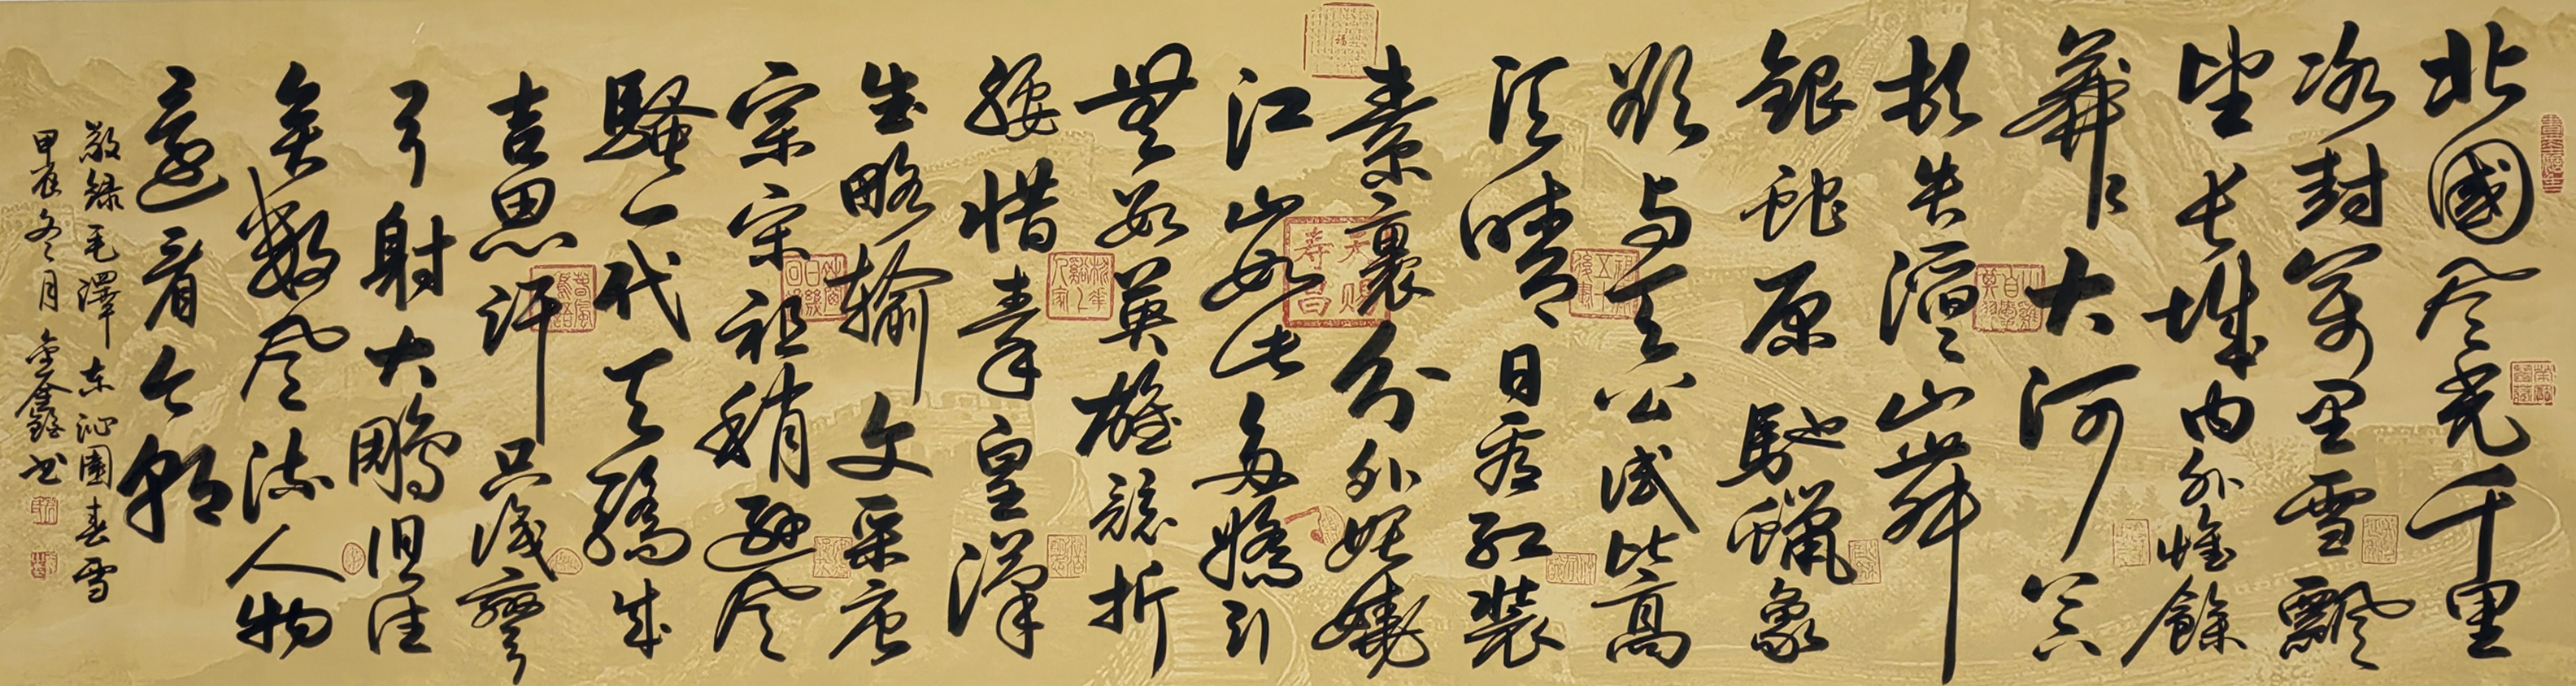 北國風光千里
冰封萬里雪飄
望長城内外惟餘
莽〻大河上下
頓失滔〻山舞
銀蛇原馳蠟象
欲与天公試比高
須晴日看紅裝
素裹分外妖嬈
江山如此多嬌引
無數英雄競折
腰惜秦皇漢
武略輸文采唐
宗宋祖稍遜風
騷一代天驕成
吉思汗只識彎
弓射大鵰俱往
矣數風流人物
還看今朝
敬錄毛澤東沁園春雪
甲辰冬月 书
天賜壽昌